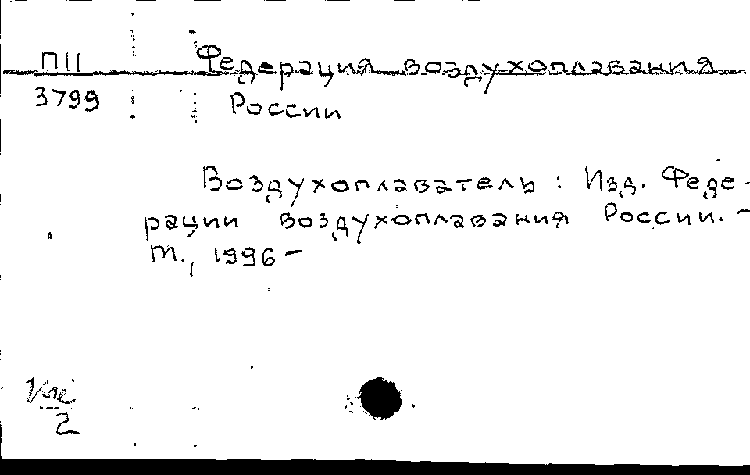 П11
Федерация воздухоплавания
3799
России
Воздухоплаватель : Изд. Феде-
рации воздухоплавания России. -
М., 1996 -
2